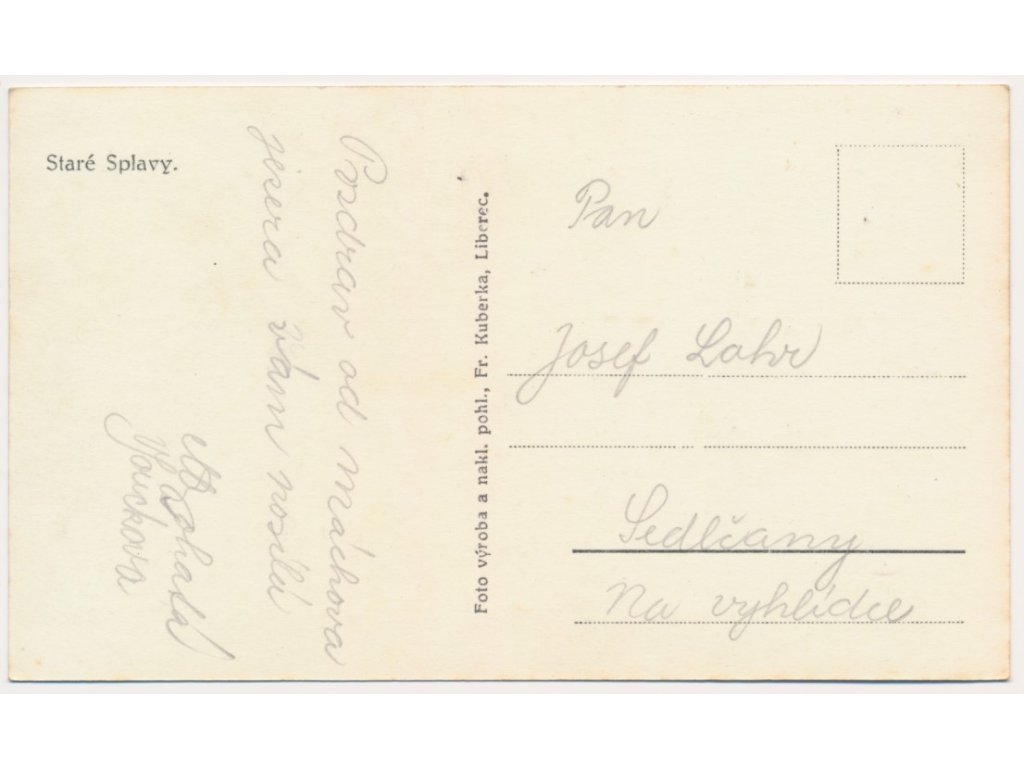 Staré Splavy.
Pozdrav od máchova
jezera Vám nosílá
Vouskova
Foto výroba a nakl. pohl., Fr. Kuberka, Liberec.
Pan
Josef Lahr
Sedlčany
Na vyhlídce